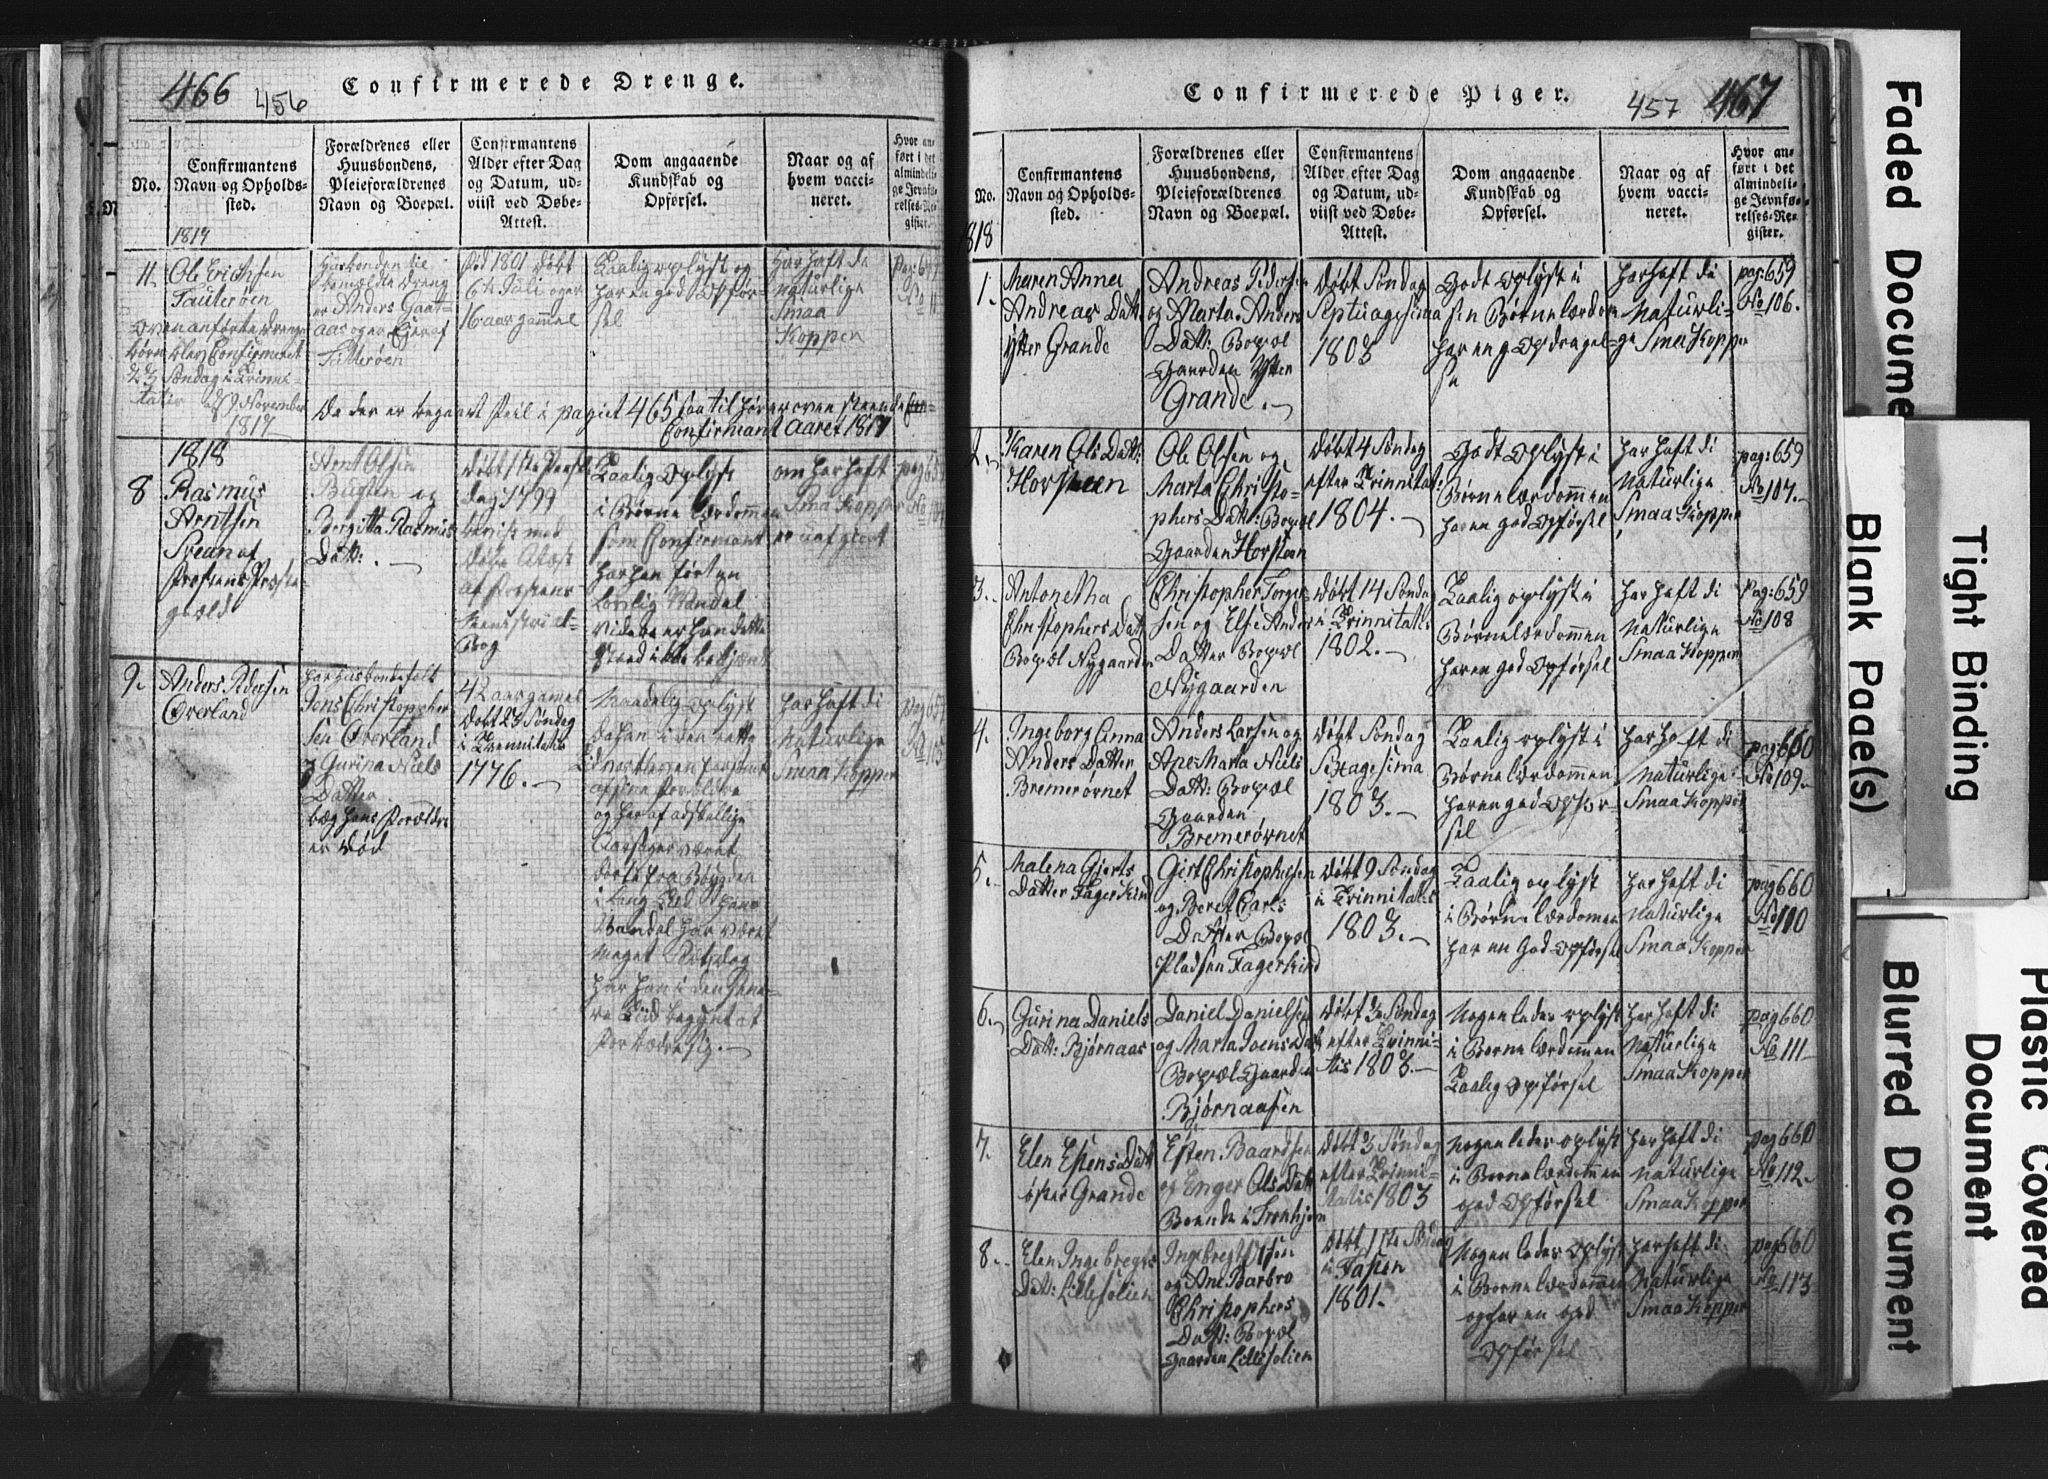 466 456
Confirmerede Drenge.
No.
Confirmantens
Navn og Opholds-
sted.
Forældrenes eller
Huusbondens,
Pleieforældrenes
Navn og Boepæl.
Confirmantens
Alder efter Dag
og Datum, ud-
viist ved Døbe-
Attest.
Dom angaaende
Kundskab og
Opførsel.
Naar og af
hvem vacci-
neret.
Hvor an-
ført i det
almindeli-
ge Jevnfø-
relses-Re-
gister.
1817
11.
Ole Erichsen
Tauterøen
ovenanførte Drenge
børn blev Confirmeret
23 Søndag i Trinni-
tatis d 9 November
1817
Husbonden til
bemældte Dreng
er Anders Gaat-
aas og er Ejer af
Tauterøen
Fød 1801 døbt
6te Juli og er
16 aar gammel
Taalig oplyst og
har en god Opfør-
sel
har haft de
naturlige
Smaa
Kopper
De der er begaaet Feil i pagiet 465 saa tilhører oven staaende
Confirmant Aaret 1817
1818
8
Rasmus
Arntsen
Svean af
Præste-
gield
Arnt Olsen
Bugten og
Bergitta Rasmus
Datt: . —
Døbt 1ste
dag 1799
Bog
Taalig Oplyst
i Børne lærdommen
som Confirmant
har han ført en
lovlig Vandel
om har haft
Smaa Kopper
er uafgiort
9.
Anders Pedersen
Overland
har husbondefolk
Jens Christopher
sen Overland
og Gurina Niels
Datter
begge hans Forældre
er død
42 aar gamel
Døbt 23 Søndag
i Trinnitatis
1776. —
Maadelig Oplyst
og har af adskellige
Aarsager været
borte fra Bøygden
i lang Tid hans
Vandel har været
meget
har han i den
re Tiid begynt at
forbædre sig. —
har haft di
Naturlige
Smaa Kopper
Confirmerede Piger.
457 467
No.
Confirmantens
Navn og Opholds-
sted.
Forældrenes eller
Huusbondens,
Pleieforældrenes
Navn og Boepæl.
Confirmantens
Alder efter Dag
og Datum, ud-
viist ved Døbe-
Attest.
Dom angaaende
Kundskab og
Opførsel.
Naar og af
hvem vacci-
neret.
Hvor an-
ført i det
almindeli-
ge Jevnfø-
relses-Re-
gister.
1818
1.
Maren Anna
Andreas Datt:
Ytter Grande
Andreas Peder
og Marta Anders
Datt: Bopæl
Gaarden Ytter
Grande. —
Døbt Søndag
Septuagesima
1803
Godt Oplyst i
sin Børnelærdom
har en g opdragel-
se
har haft di
Naturli-
ge Smaa Kopper
pag: 659
No 106.
2.
Karen Ols Datt:
Horsteen
Ole Olsen og
Marta Christo-
phers Datt: Bopæl
Gaarden Horsteen
Døbt 4 Søndag
efter Trinnitat:
1804. —
Godt Oplyst i
Børne Lærdommen
har en god Opførsel
har haft di
Naturlige
Smaa Kopper
pag: 659
No 107. —
3.
Antonetha
Christophers Datt
Bopæl Nygaarden
Christopher Torger-
sen og Else Anders
Datter Bopæl
Nygaarden
Døbt 14 Søndag
i Trinnitatis
1802. —
Taalig oplyst i
Børnelærdommen
har en god Opførsel
har haft di
Naturlige
Smaa Kopper
Pag: 659
No 108
4.
Ingeborg Anna
Anders Datter
Bremerørnet
Anders Larsen og
Ane Marta Niels
Datt: Bopæl
Gaarden
Bremerørnet
Døbt Søndag
Sexagesima
1803. —
Taalig oplyst i
Børne Lærdommen
har en god Opfør-
sel
har haft di
Naturlige
Smaa Kopper
pag: 660
No 109. —
5.
Malena Gjerts
Datter Fagerkind
Giert Christophersen
og Beret Carls
Datter Bopæl
Pladsen Fagerkind
Døbt 9 Søndag
i Trinnitatis
1803. —
Taalig oplyst
i Børne Lærdomen
har en God Opførsel
har haft di
Naturlige
Smaa Kopper
pag 660
No 110
6.
Gurina Daniels
Datt: Bjørnaas
Daniel Danielsen
og Marta Joens Datt
Bopæl Gaarden
Bjørnaasen
Døbt Søndag
efter Trinni-
tis 1803. —
Nogenledes oplyst
i Børne Lærdommen
Taalig Opførsel
har haft di
Naturlige
Smaa Kopper
pag 660
No 111
7.
Elen Estens Datt
øster Grande
Esten Baardsen
og Enger Ols Datt
Boende i Tronhjem
Døbt Søndag
efter Trinni-
tatis 1803
Nogenledes oplyst
i Børne Lærdommen
god Opførsel
har haft di
Naturlige
Smaa Kopper
pag 660
No 112.
8.
Elen Ingebregts
Datt: Lillesolien
Ingebregt
og Ane Barbro
Christophers
Datt: Bopæl
Gaarden Lillesolien
Døbt 1ste Søndag
i Fasten
1801.
Nogenledes Oplyst
i Børne Lærdommen
og har en god
Opførsel
har haft di
Naturlige
Smaa Kopper
pag 660
No 113
Faded Document
Tight Binding
Blank Page(s)
Plastic Covered
Document
Blurred Document